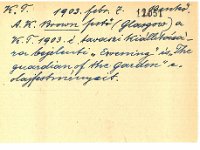 K. T. 1903. febr. 7. Benkó 12651
A. K. Brown festő (Glasgow) a
K. T. 1903. é. tavaszi kiállításá-
ra bejelenti „Evening" és „The
guardian of the Garden" c.
olajfestményeit.